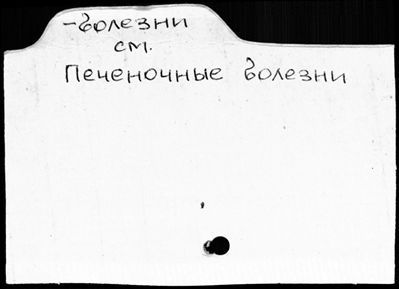 -болезни
см.
Печеночные болезни